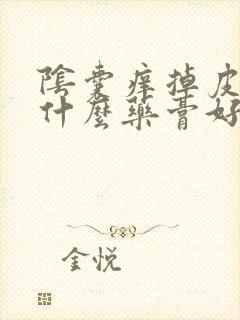 陰囊痒掉皮
什麼藥膏好
金悦